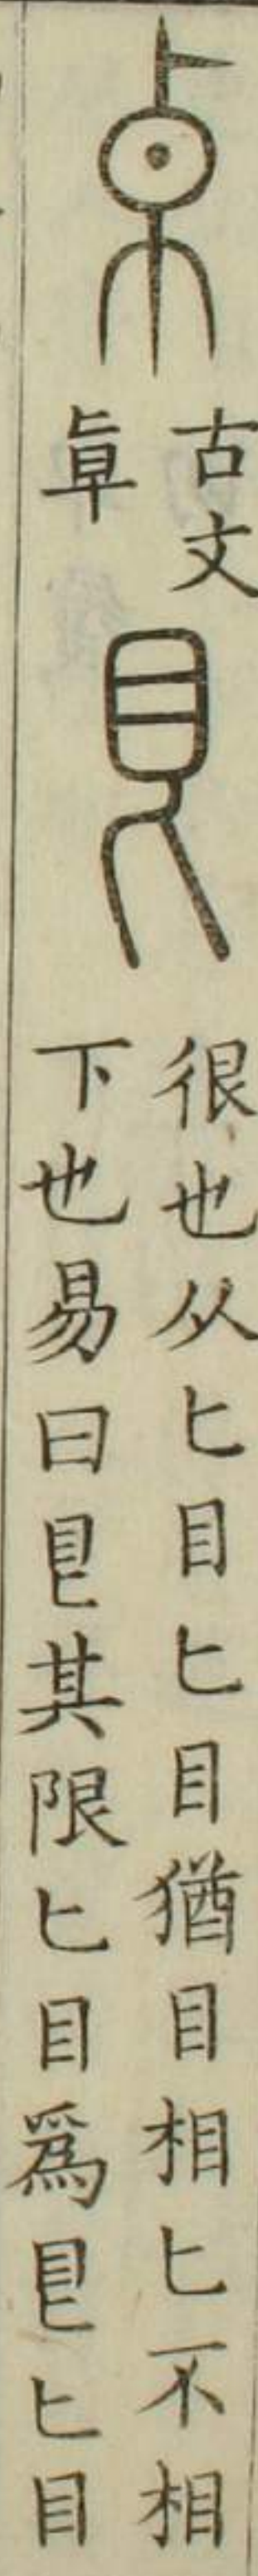 𠦝
古文
𠧟
皀
很也从匕目匕目猶目相匕不相
下也易曰皀其限匕目爲皀匕目